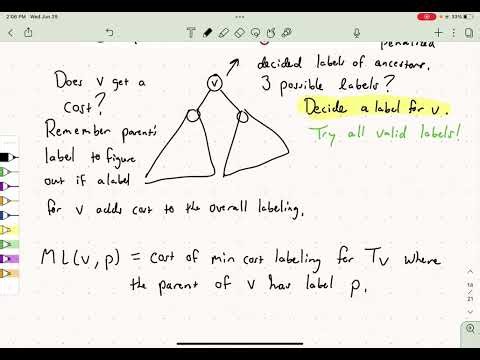 2:06 PM Wed Jun 29
33%
penalized
decided labels of ancestors.
Does v get a
cost?
v
3 possible labels?
Decide a label for v.
Remember parent's
label to figure
out if a label
Try all valid labels!
for v adds cost to the overall labeling.
ML(v, p) = cost of min cost labeling for Tv where
the parent of v has label p.
14
21